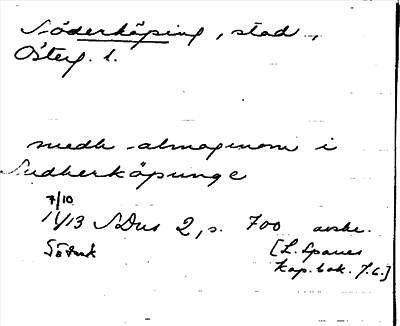 Söderköping, stad,
Österg. l.
medh almogenom i
Sudherköpunge
7/10
1413 SDns 2, s. 700 avskr.
Sötsk
[L. Spaues
Kop. bok. 7.6.]